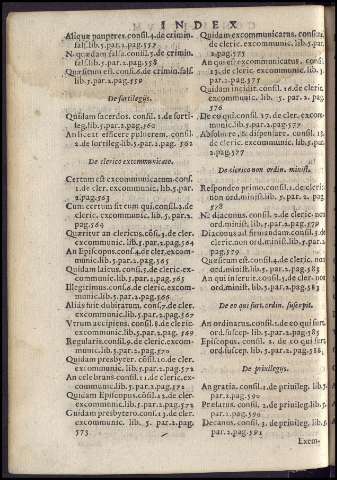 INDEX
Aliqui paupires. consil. 4. de crimin.
fals. lib. 5. par. 2. pag. 557
Nquædam falsa. consil. 5. de crimin.
fals. lib. 5. par. 2. pag. 558
Quæsitum est. consil. 6. de crimin. fals.
lib. 5. par. 2. pag. 559
De sortilegus.
Quidam sacerdos. consil. 1. de sorti-
leg. lib. 5. par. 2. pag. 560
An liceat efficere pulverem. consil.
2. de sortileg. lib. 5. par. 2. pag. 562
De clerico excommunicato.
Certum est excommunicatum. cons.
1. de cler. excommunic. lib. 5. par.
2. pag. 563
Cum certum sit cum qui. consil. 2. de
cleric. excommunic. lib. 5. par. 2.
pag. 564
Quæritur an clericus. cõs. 3. de cler.
excommunic. lib. 5. par. 2. pag. 564
An Episcopus. cons. 4. de cler. excom-
munic. lib. 5. par. 2. pag. 565
Quidam laicus. cons. 5. de cleric. ex-
communic. lib. 5. par. 2. pag. 565
Illegitimus. cons. 6. de cleric. excom-
munic. lib. 5. par. 2. pag. 566
Aliàs fuit dubitatum. cons. 7. de cler.
excommunic. lib. 5. par. 2. pag. 567
Vtrum accipiens. consil. 8. de cleric.
excommunic. lib. 5. par. 2. pag. 569
Regularis. consil. 9. de cleric. excom-
munic. lib. 5. par. 2. pag. 570
Quidam presbyter. consil. 10. de cler.
excommunic. lib. 5. par. 2. pag. 572
An celebrans. consil. 11. de cler. excom-
munic. lib. 5. par. 2. pag. 572
Quidam Episcopus. consil. 12. de cler.
excommunic. lib. 5. par. 2. pag. 573
Quidam presbytero. cons. 13. de cler.
excommunic. lib. 5. par. 2. pag.
573.
Quidam excommunicatus. cons.
de cleric. excommunic. lib. 5. par.
2. pag. 575
An quis excommunicatus. consil.
15. de cleric. excommunic. lib. 5.
par. 2. pag. 575
Quidam incidit. consil. 16. de cleric.
excommunic. lib. 5. par. 2. pag.
576
De eo qui. consil. 17. de cler. excom-
munic. lib. 5. par. 2. pag. 577
Absoluere, & dispensare. consil. 18.
de cleric. excommunic. lib. 5. par.
2. pag. 577
De clerico non ordin. minist.
Respondeo primo. consil. 1. de cleric.
non ord. minist. lib. 5. par. 2. pag.
578
N. diaconus. consil. 2. de cleric. non
ord. minist. lib. 5. par. 2. pag. 579
Diaconus ad firmandam. consil. 3. de
cleric. non ord. minist. lib. 5. par. 2.
pag. 579
Quæsitum est. consil. 4. de cleric. non
ord. minist. lib. 5. par. 2. pag. 583
An qui inseruit. consil. 5. de cler. non
ord. minist. lib. 5. par. 2. pag. 583
De eo qui furt. ordin. suscepit.
An ordinatus. consil. 1. de eo qui furt.
ord. suscep. lib. 5. par. 2. pag. 585
Episcopus. consil. 2. de eo qui furt.
ord. suscep. lib. 5. par. 2. pag. 588
De priuilegus.
An gratia. consil. 1. de priuileg. lib. 5.
par. 2. pag. 590
Prelatus. consil. 2. de priuileg. lib. 5.
par. 2. pag. 590
Decanus. consil. 3. de priuileg. lib. 5.
par. 2. pag. 591
Exem-